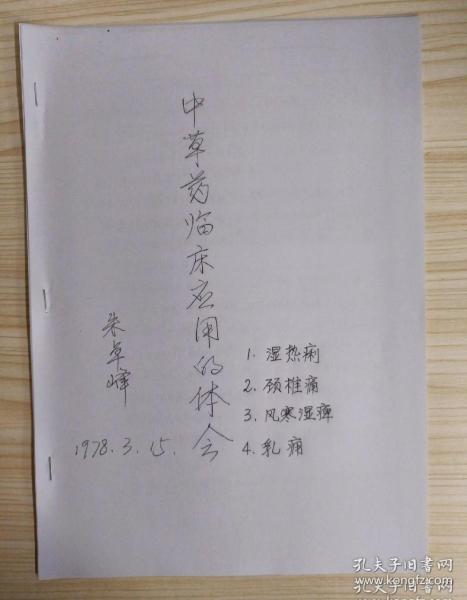 中草药临床应用的体会
朱卓峰
1978.3.15.
1. 湿热痢
2. 颈椎痛
3. 风寒湿痹
4. 乳痈
孔夫子旧书网
kongfz.com
孔夫子旧书网